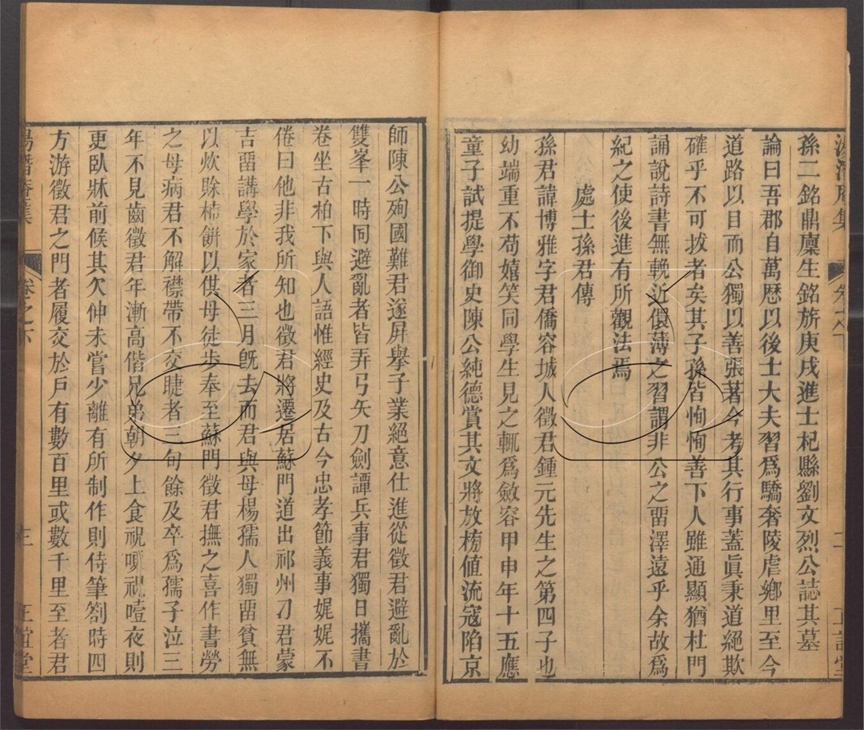 孫二銘鼎廩生銘旂庚戌進士杞縣劉文烈公誌其墓
論曰吾郡自萬厯以後士大夫習爲驕奢陵虐鄉里至今
道路以目而公獨以善張著今考其行事蓋眞秉道絕欺
確乎不可拔者矣其子孫皆恂恂善下人雖通顯猶杜門
誦說詩書無輓近儇薄之習謂非公之畱澤遠乎余故爲
紀之使後進有所觀法焉
處士孫君傳
孫君諱博雅字君僑容城人徵君鍾元先生之第四子也
幼端重不苟嬉笑同學生見之輒爲斂容甲申年十五應
童子試提學御史陳公純德賞其文將放榜値流寇陷京
師陳公殉國難君遂屏舉子業絕意仕進從徵君避亂於
雙峯一時同避亂者皆弄弓矢刀劍譚兵事君獨日攜書
卷坐古柏下與人語惟經史及古今忠孝節義事娓娓不
倦曰他非我所知也徵君將遷居蘇門道出祁州刁君蒙
吉畱講學於家者三月旣去而君與母楊孺人獨畱貧無
以炊賒餅以供母徒步奉至蘇門徵君撫之喜作書勞
之母病君不解襟帶不交睫者三旬餘及卒爲孺子泣三
年不見齒徵君年漸高偕兄弟朝夕上食視哽視噎夜則
更臥牀前候其欠伸未嘗少離有所制作則侍筆劄時四
方游徵君之門者履交於戶有數百里或數千里至者君
卷之下
三